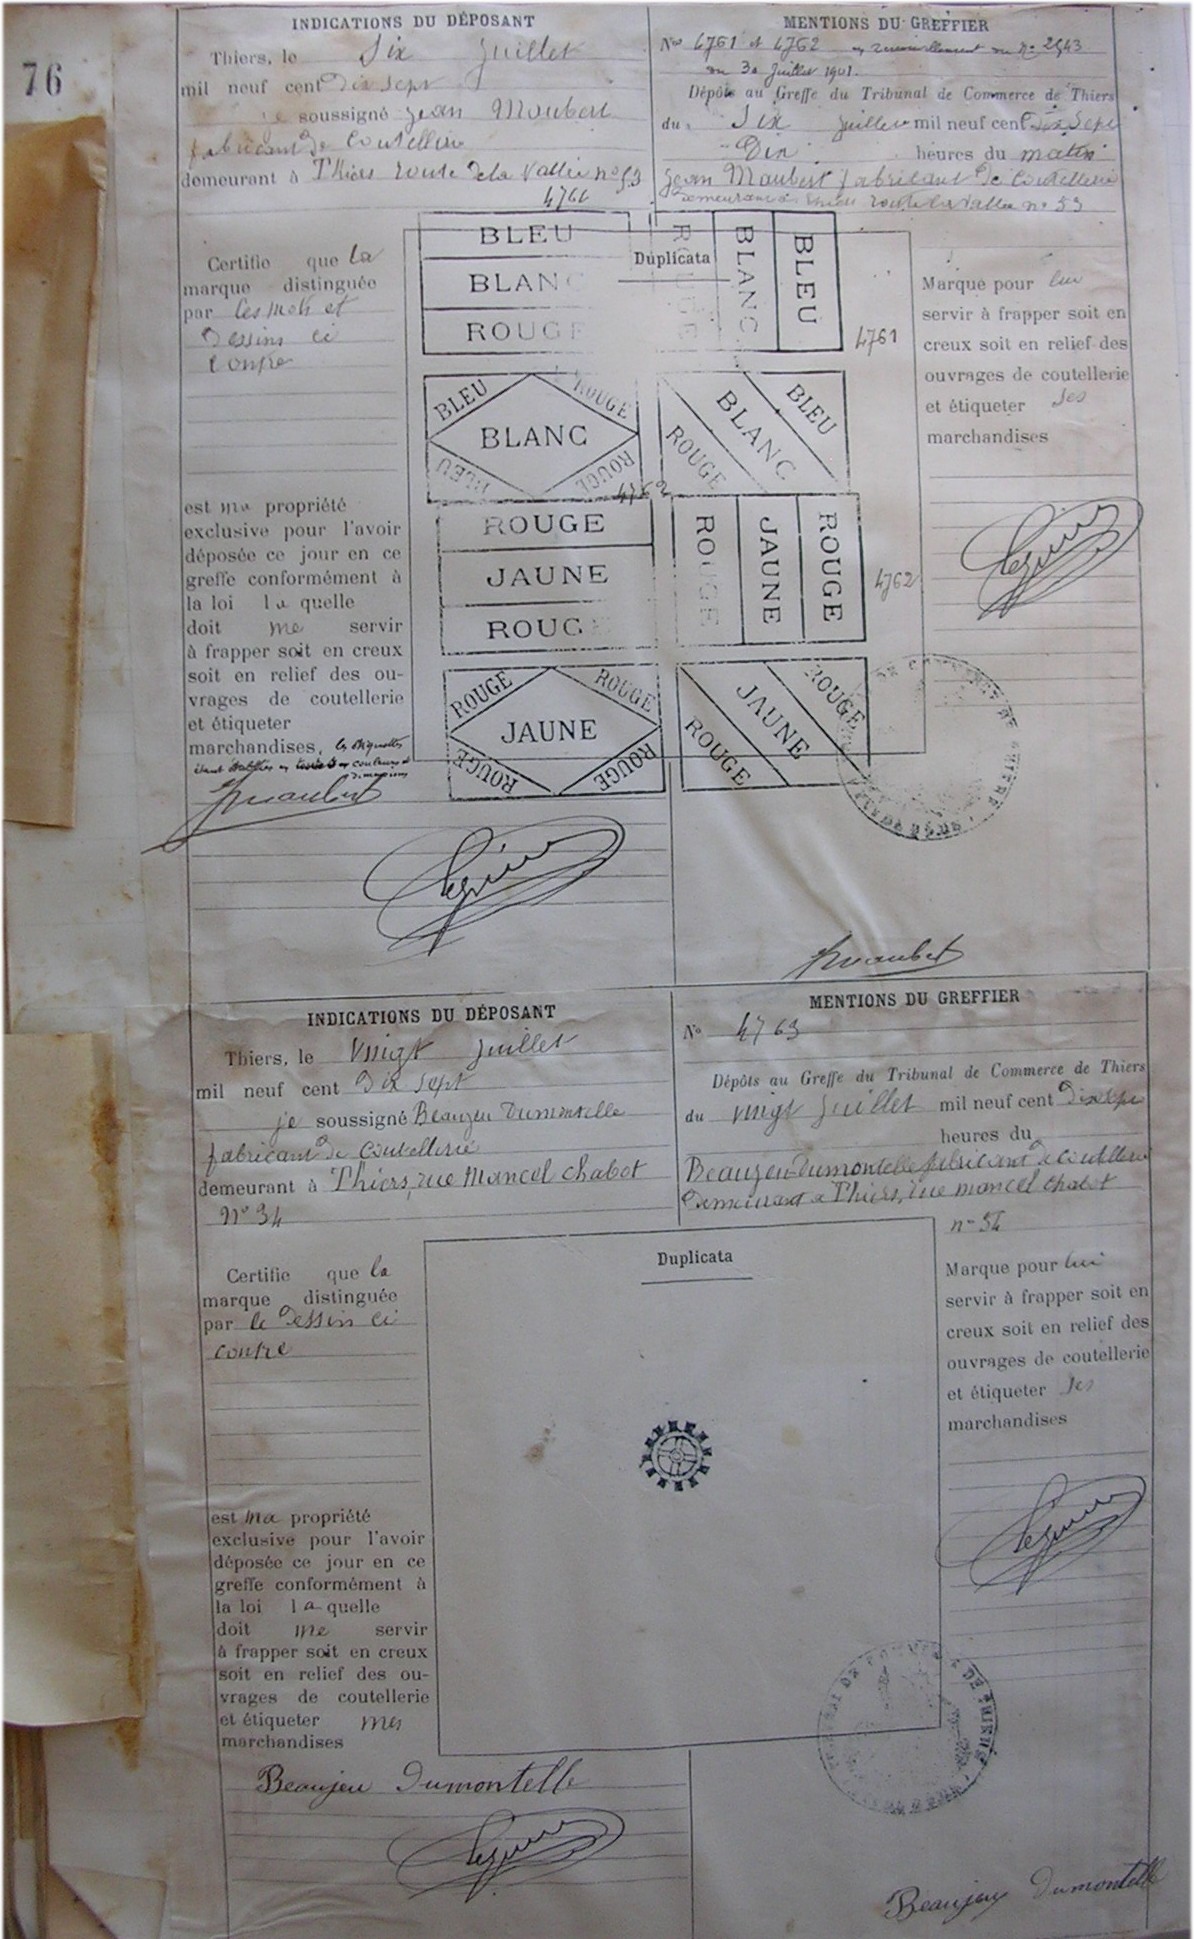 76
INDICATIONS DU DÉPOSANT
Thiers, le Six Juillet
mil neuf cent Dix sept
je soussigné Jean Maubert
fabricant de Coutellerie
demeurant à Thiers route de la Vallée no 53
MENTIONS DU GREFFIER
Nos 4761 et 4762 en renouvellement du no 2943
du 30 Juillet 1901.
Dépôts au Greffe du Tribunal de Commerce de Thiers
du Six Juillet mil neuf cent Dix Sept
Dix heures du matin
Jean Maubert fabricant de Coutellerie
demeurant à Thiers route la Vallée no 53
Certifie que la
marque distinguée
par les mots et
Dessins ci
contre
est ma propriété
exclusive pour l'avoir
déposée ce jour en ce
greffe conformément à
la loi la quelle
doit me servir
à frapper soit en creux
soit en relief des ou-
vrages de coutellerie
et étiqueter
marchandises, les étiquettes
étant établies en toutes couleurs et
dimensions
JMaubert
Duplicata
BLEU
BLANC
ROUGE
ROUGE
BLANC
BLEU
4761
BLEU
ROUGE
BLANC
BLEU
ROUGE
BLEU
BLANC
ROUGE
4762
ROUGE
JAUNE
ROUGE
ROUGE
JAUNE
ROUGE
4762
ROUGE
ROUGE
JAUNE
ROUGE
ROUGE
ROUGE
JAUNE
ROUGE
Marque pour lui
servir à frapper soit en
creux soit en relief des
ouvrages de coutellerie
et étiqueter ses
marchandises
JMaubert
INDICATIONS DU DÉPOSANT
Thiers, le Vingt Juillet
mil neuf cent Dix sept
je soussigné Beaujeu Dumontelle
fabricant de Coutellerie
demeurant à Thiers, rue Mancel Chabot
No 34
MENTIONS DU GREFFIER
No 4763
Dépôts au Greffe du Tribunal de Commerce de Thiers
du Vingt Juillet mil neuf cent Dix sept
heures du
Beaujeu-Dumontelle fabricant de Coutellerie
Demeurant à Thiers, rue Mancel Chabot
no 34
Certifie que la
marque distinguée
par le Dessin ci
contre
est ma propriété
exclusive pour l'avoir
déposée ce jour en ce
greffe conformément à
la loi la quelle
doit me servir
à frapper soit en creux
soit en relief des ou-
vrages de coutellerie
et étiqueter mes
marchandises
Beaujeu Dumontelle
Duplicata
Marque pour lui
servir à frapper soit en
creux soit en relief des
ouvrages de coutellerie
et étiqueter ses
marchandises
Beaujeu Dumontelle